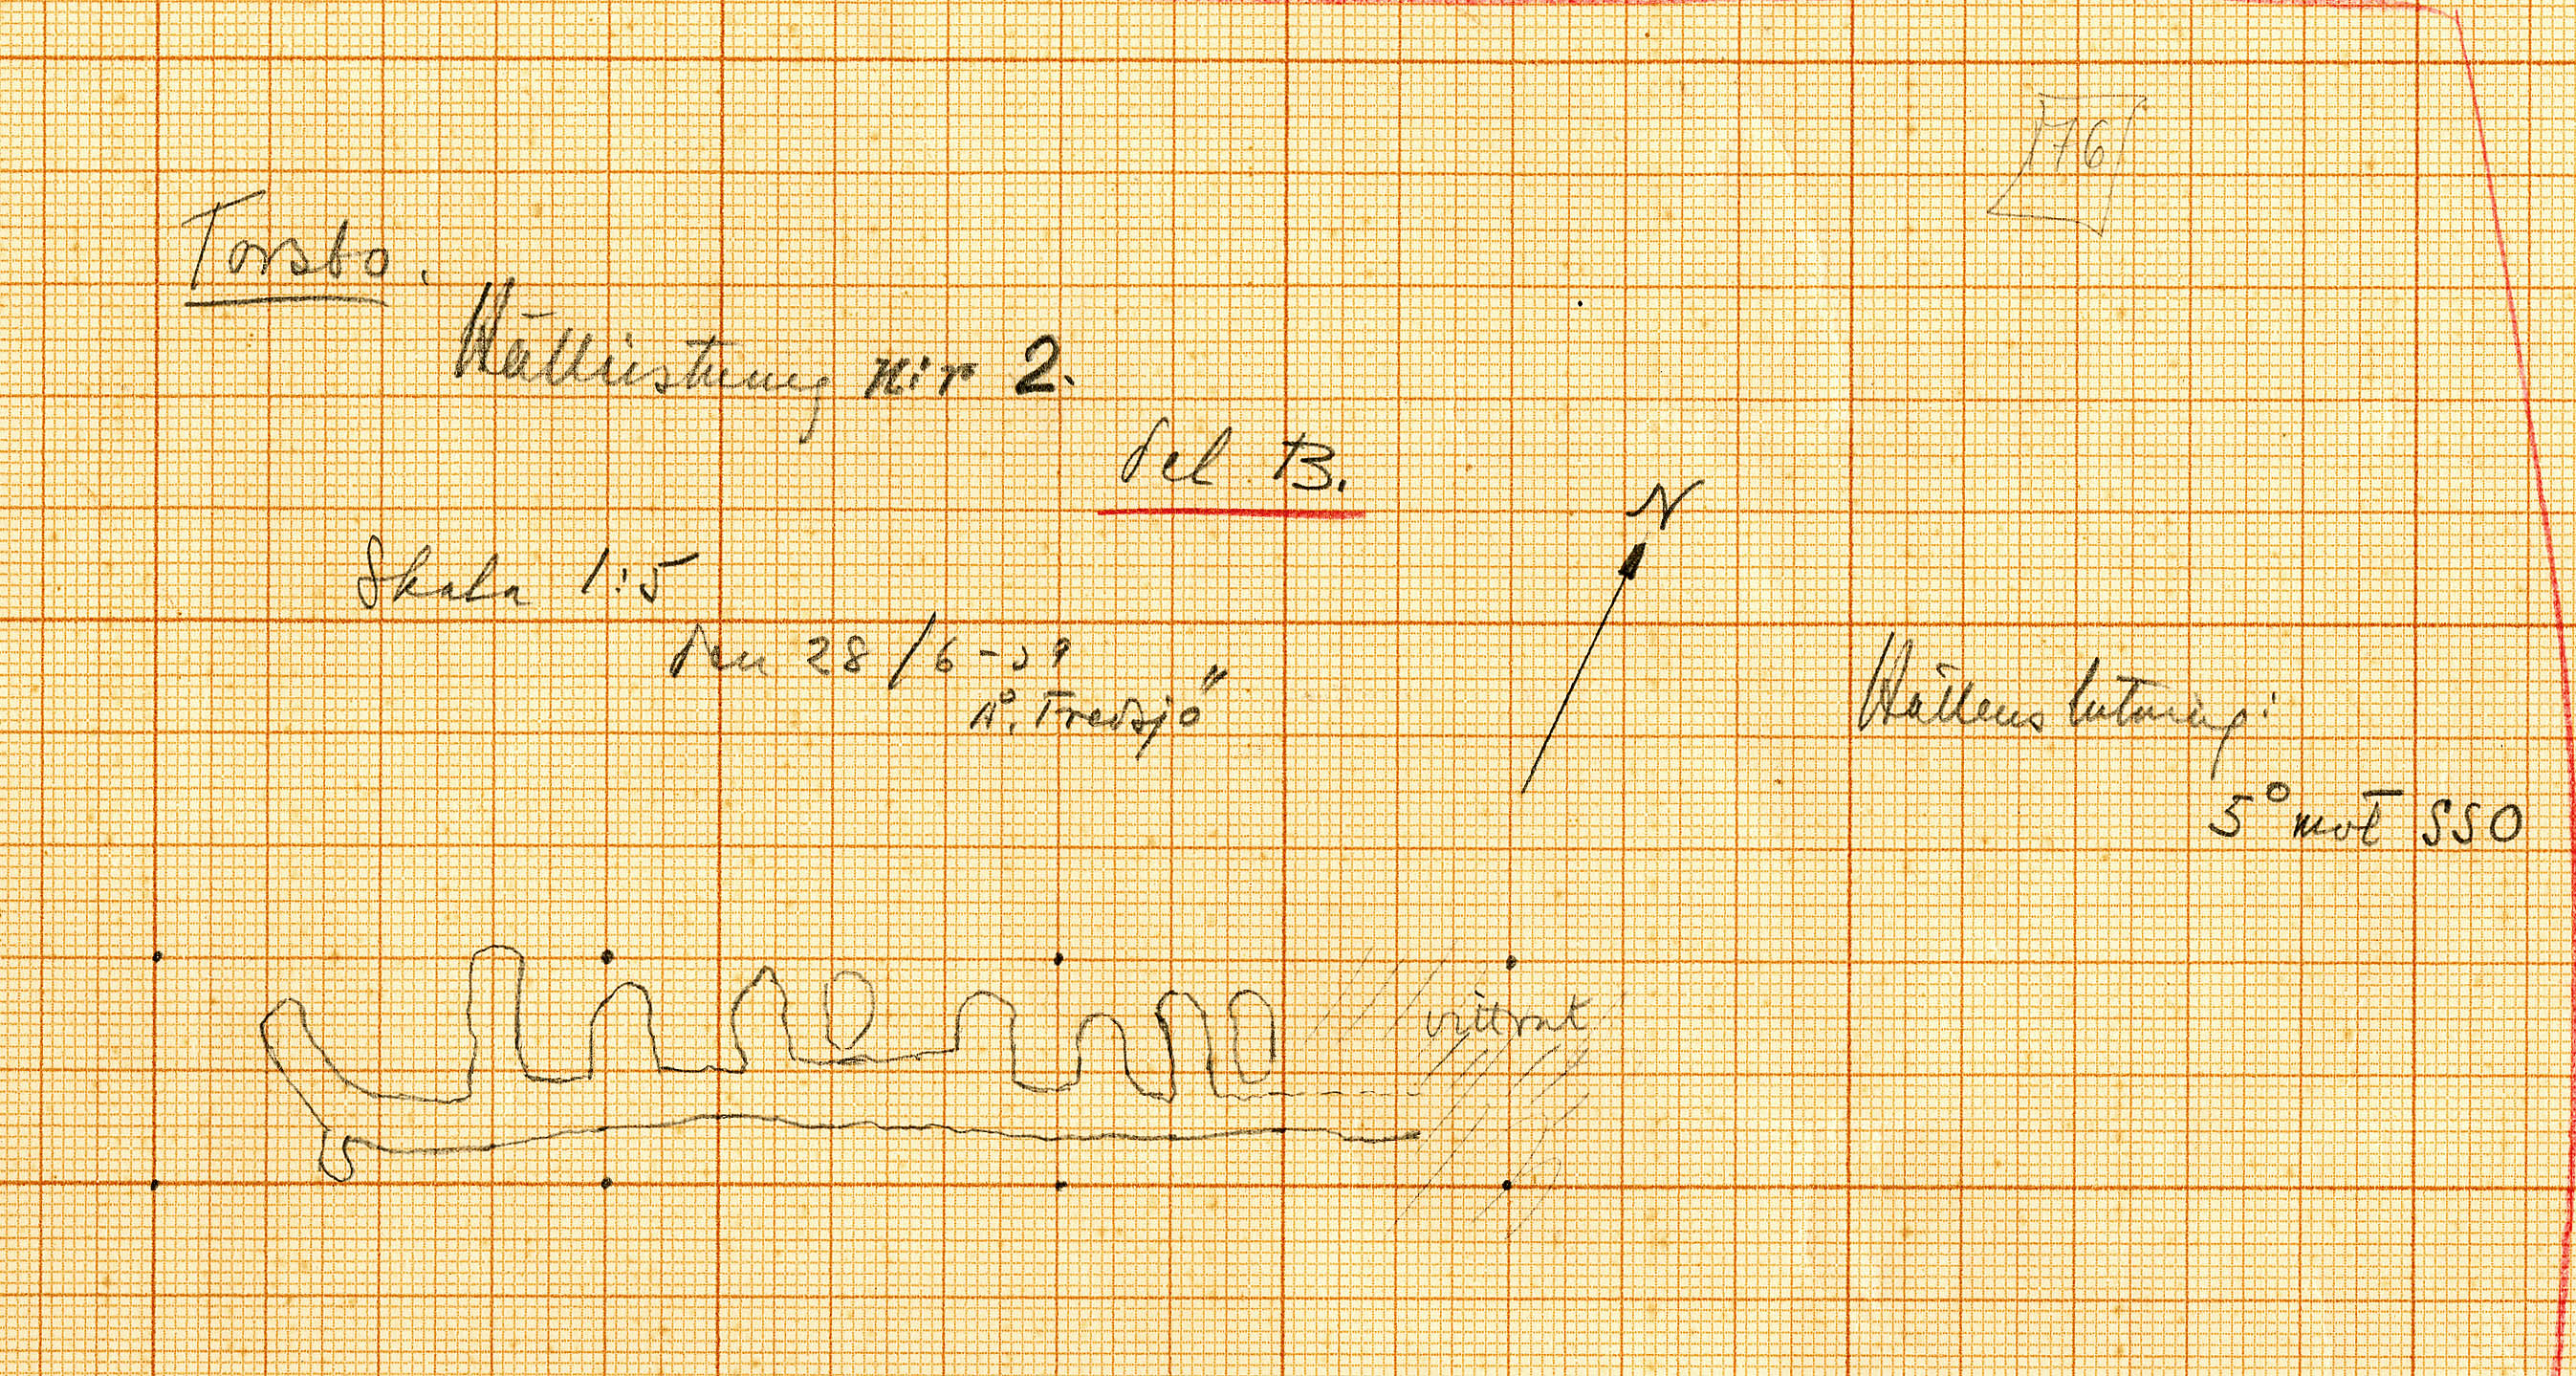 76
Torsbo.
Hällristning n:r 2.
del B.
N
Skala 1:5
den 28/6-39
Å. Fredsjö
Hällens lutning:
5° mot SSO
vittrat